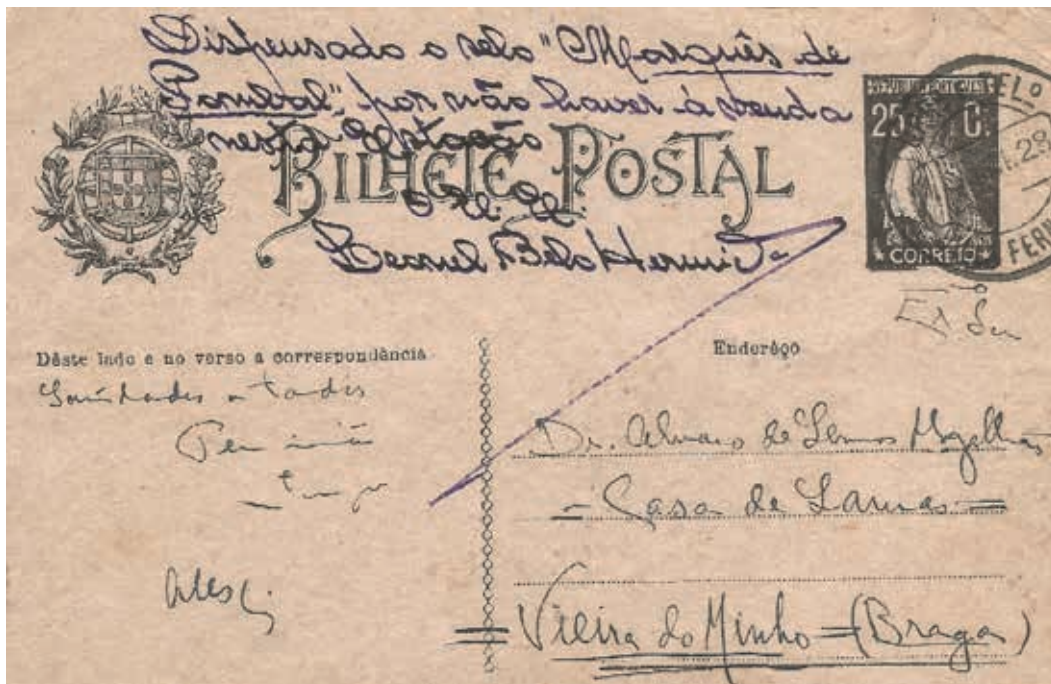 Dispensado o selo "Marquês de
Pombal", por não haver á venda
nesta Estação
BILHETE POSTAL
Leonel Belo Hermida
REPUBLICA PORTUGUESA
25 C.
CORREIO
ELº
28
FER
Dêste lado e no verso a correspondência
Saudades a todos
Teu irmão
Endereço
Dr. Alvaro de Lemos Magalhães
= Casa de Lamas =
= Vieira do Minho = (Braga)